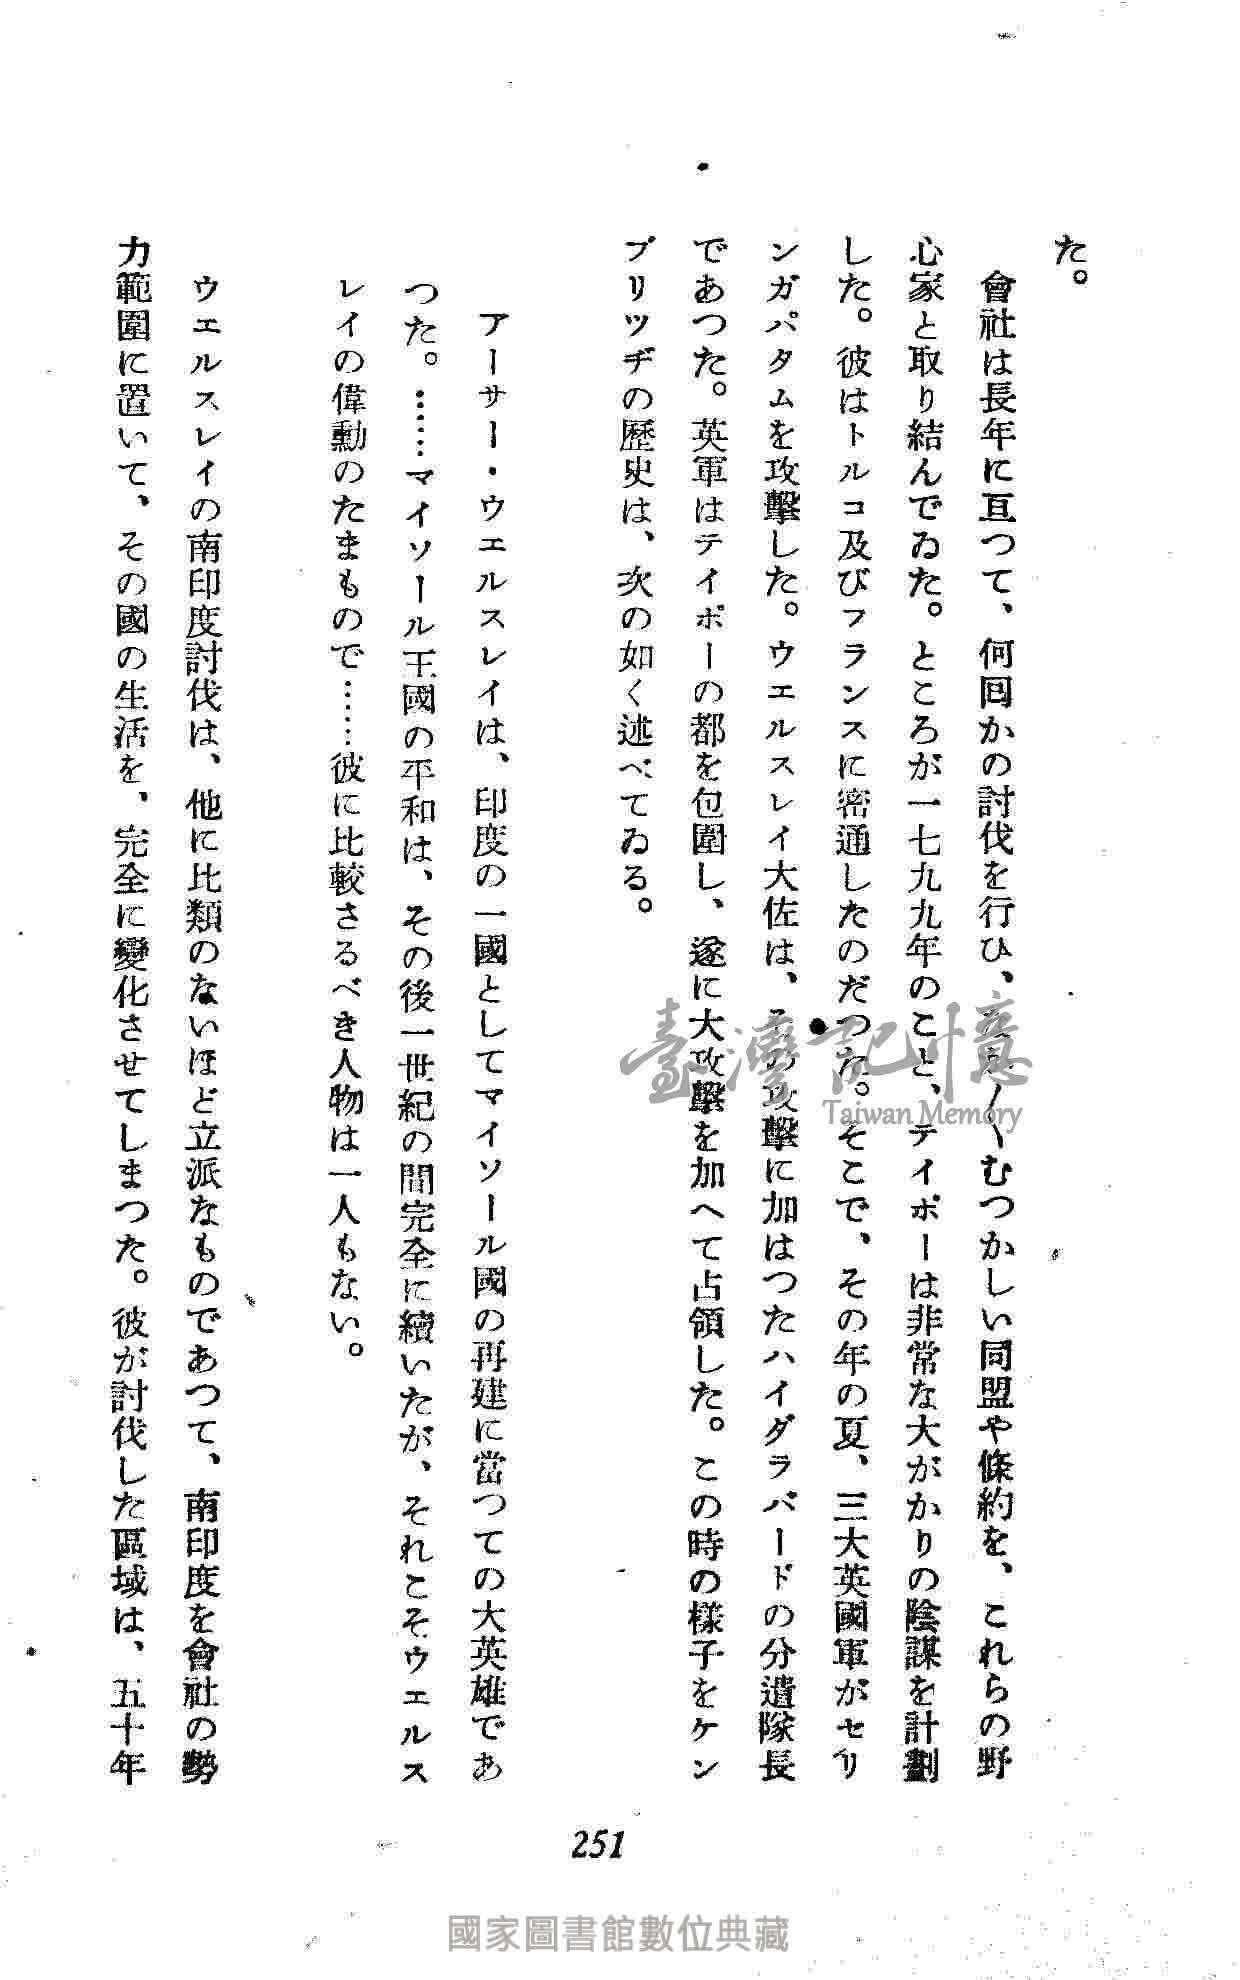 た。
會社は長年に亘つて、何囘かの討伐を行ひ、むつかしい同盟や條約を、これらの野
心家と取り結んでゐた。ところが一七九九年のこと、テイポーは非常な大がかりの陰謀を計劃
した。彼はトルコ及びフランスに密通したのだつた。そこで、その年の夏、三大英國軍がセリ
ンガパタムを攻擊した。ウエルスレイ大佐は、その攻擊に加はつたハイダラバードの分遣隊長
であつた。英軍はテイポーの都を包圍し、遂に大攻擊を加へて占領した。この時の樣子をケン
ブリツヂの歷史は、次の如く述べてゐる。
アーサー・ウエルスレイは、印度の一國としてマイソール國の再建に當つての大英雄であ
つた。……マイソール王國の平和は、その後一世紀の間完全に續いたが、それこそウエルス
レイの偉勳のたまもので……彼に比較さるべき人物は一人もない。
ウエルスレイの南印度討伐は、他に比類のないほど立派なものであつて、南印度を會社の勢
力範圍に置いて、その國の生活を、完全に變化させてしまつた。彼が討伐した區域は、五十年
251
臺灣記憶
Taiwan Memory
國家圖書館數位典藏